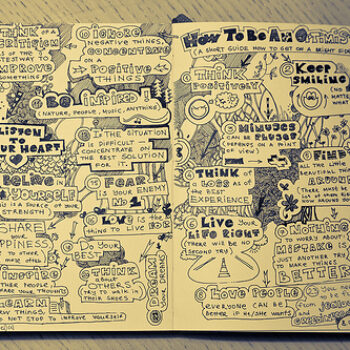 HOW TO BE AN OPTIMIST
(A SHORT GUIDE HOW TO GET ON A BRIGHT SIDE)
THINK
POSITIVELY
KEEP
SMILING
(NO
MATTER
WHAT)
MINUSES
CAN BE PLUSES
(DEPENDS ON A POINT
OF VIEW)
FIND
THINK
OF LOSS AS OF
THE BEST
EXPERIENCE
LIVE YOUR
LIFE RIGHT
(THERE WILL BE NO
SECOND TRY)
NOTHING
TO WORRY ABOUT
MISTAKE IS
JUST ANOTHER TRY
THINGS
BETTER
LOVE PEOPLE
EVERYONE CAN BE
BETTER IF HE/SHE WANTS
THINK OF A
CRITICISM
AS OF THE
WAY TO
IMPROVE
SOMETHING
IGNORE
NEGATIVE THINGS,
CONCENTRATE
ON
POSITIVE
THINGS
BE INSPIRED
(NATURE, PEOPLE, MUSIC, ANYTHING)
LISTEN TO
YOUR HEART
IS THE SITUATION
IS DIFFICULT -
CONCENTRATE ON
THE BEST SOLUTION
FOR IT.
BELIEVE IN
YOURSELF
IS A SOURCE OF YOUR
STRENGTH
FEAR
IS YOUR ENEMY
NO 1
LOVE IS THE
THING TO LIVE FOR
SHARE
HAPPINESS
DO YOUR
BEST
INSPIRE
OTHER PEOPLE
SHARE YOUR THOUGHTS
THINK
ABOUT
OTHERS
TRY TO WALK IN
THEIR SHOES
DREAM
LEARN
NEW THINGS,
DO NOT STOP TO IMPROVE YOURSELF